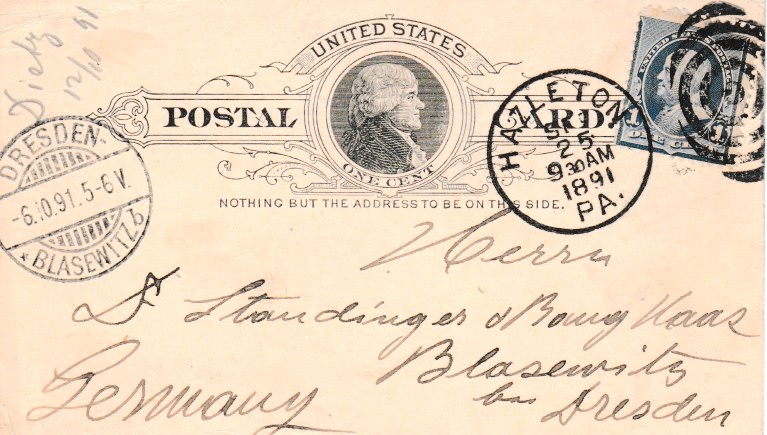 Dietz
12/10 91
UNITED STATES
POSTAL CARD
ONE CENT
NOTHING BUT THE ADDRESS TO BE ON THIS SIDE.
HAZLETON
25
9 30 AM
1891
PA.
UNITED STATES
DRESDEN-
-6.10.91.5-6V.
* BLASEWITZ.b
Herrn
Dr Standinger & Bang Haas
Blasewitz
Dresden
Germany